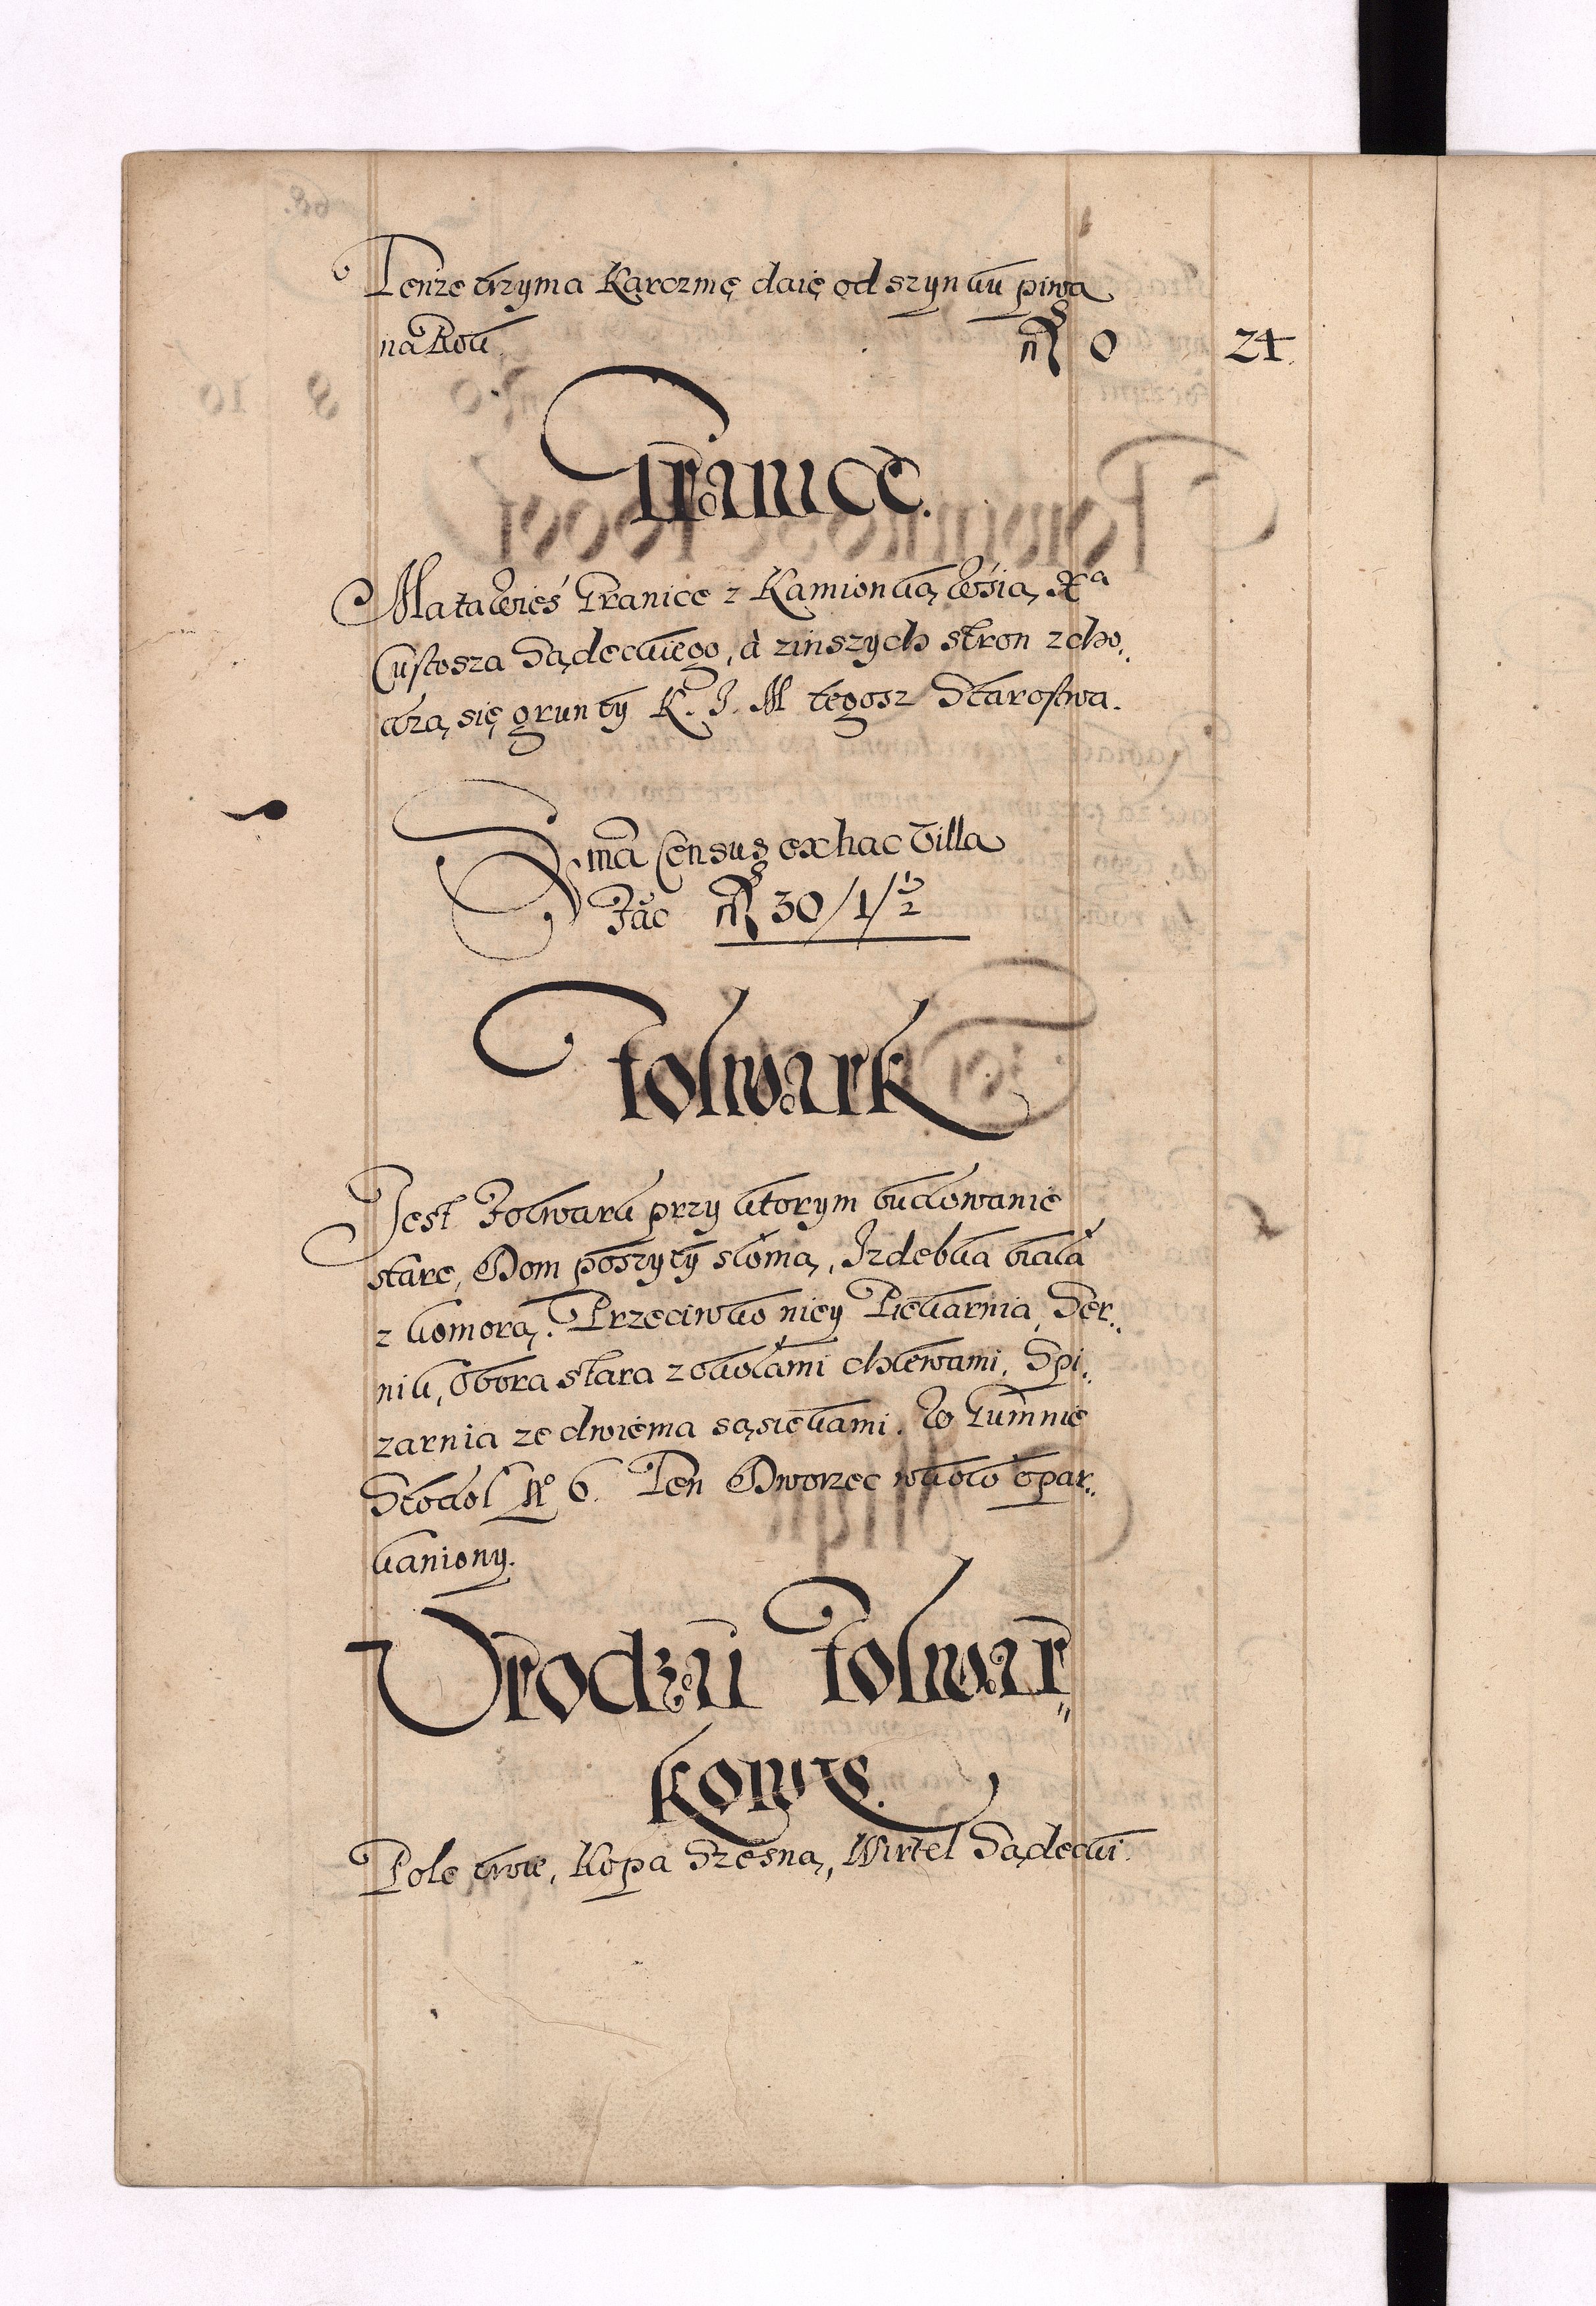 Tenże trzyma Karczmę daię od szynku piwa
na Rok fl 0 24
Granice.
Ma ta wieś Granice z Kamionką wsią Xa
Custosza Sądeckiego, à z inszych stron zcho„
dzą się grunty K. J. M tegosz Starostwa.
Sma̅ Census ex hac Villa
Fac fl 30/1/
Folwark
Jest Folwark przy ktorym budowanie
stare, Dom poszyty słomą, Izdebka biała
z komorą. Przeciwko niey Piekarnia, Ser„
nik, Obora stara z okołami chlewami, Spi„
zarnia ze dwiema sąsiekami. W Gumnie
Stodoł No 6. Ten Dworzec wkoło opar„
kaniony.
Vrodzaii Folwar„
kowe.
Pole troie, Kopa Szesna, Wirtel Sądecki.